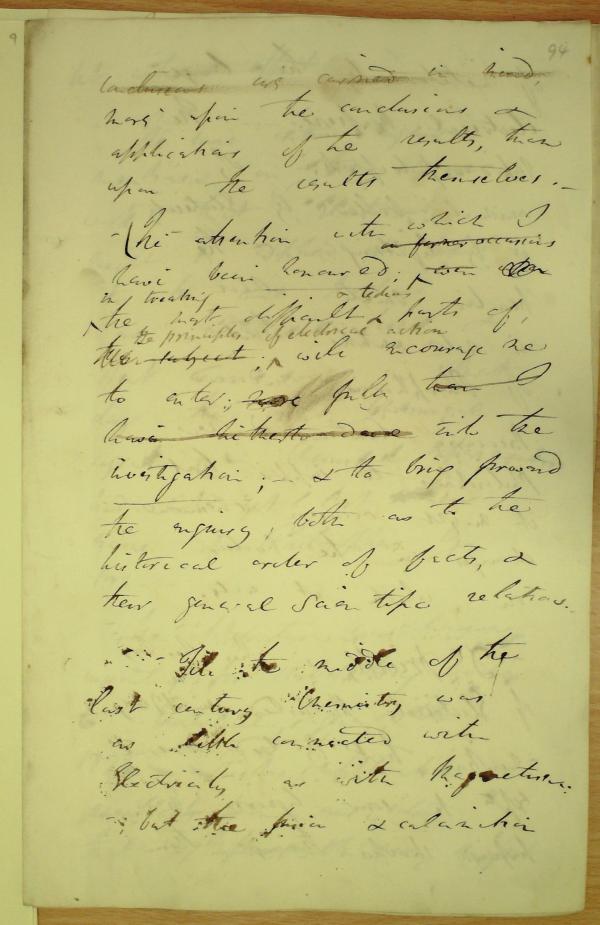 94
conclusions are carried in hand,
more upon the conclusions &
applications of the results, than
upon the results themselves. –
– The attention with which I
on former occasions
have been honoured; even when
in treating & tedious
the most difficult & parts of,
the principles of electrical action
the subject; will encourage me
to enter; more fully than I
have hitherto done into the
investigation; – & to bring forward
the enquiry; both as to the
historical order of facts, &
their general Scientific relations.
Till the middle of the
last century Chemistry was
as little connected with
Electricity as with Magnetism.
but the fusion & calcination